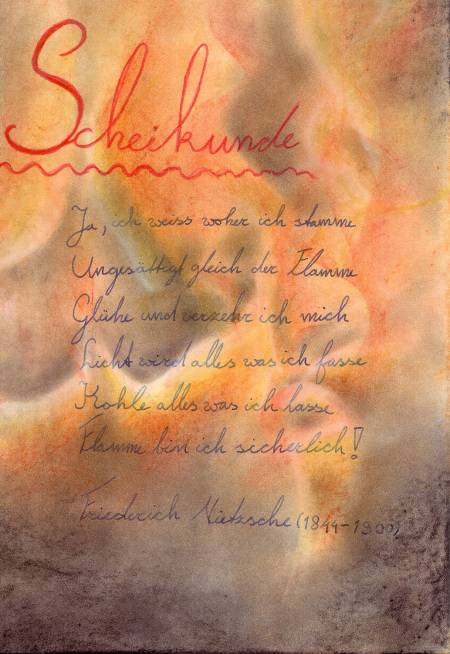 Scheikunde
Ja, ich weiss woher ich stamme
Ungesättigt gleich der Flamme
Glühe und verzehr ich mich
Licht wird alles was ich fasse
Kohle alles was ich lasse
Flamme bin ich sicherlich!
Friederich Nietzsche (1844-1900)